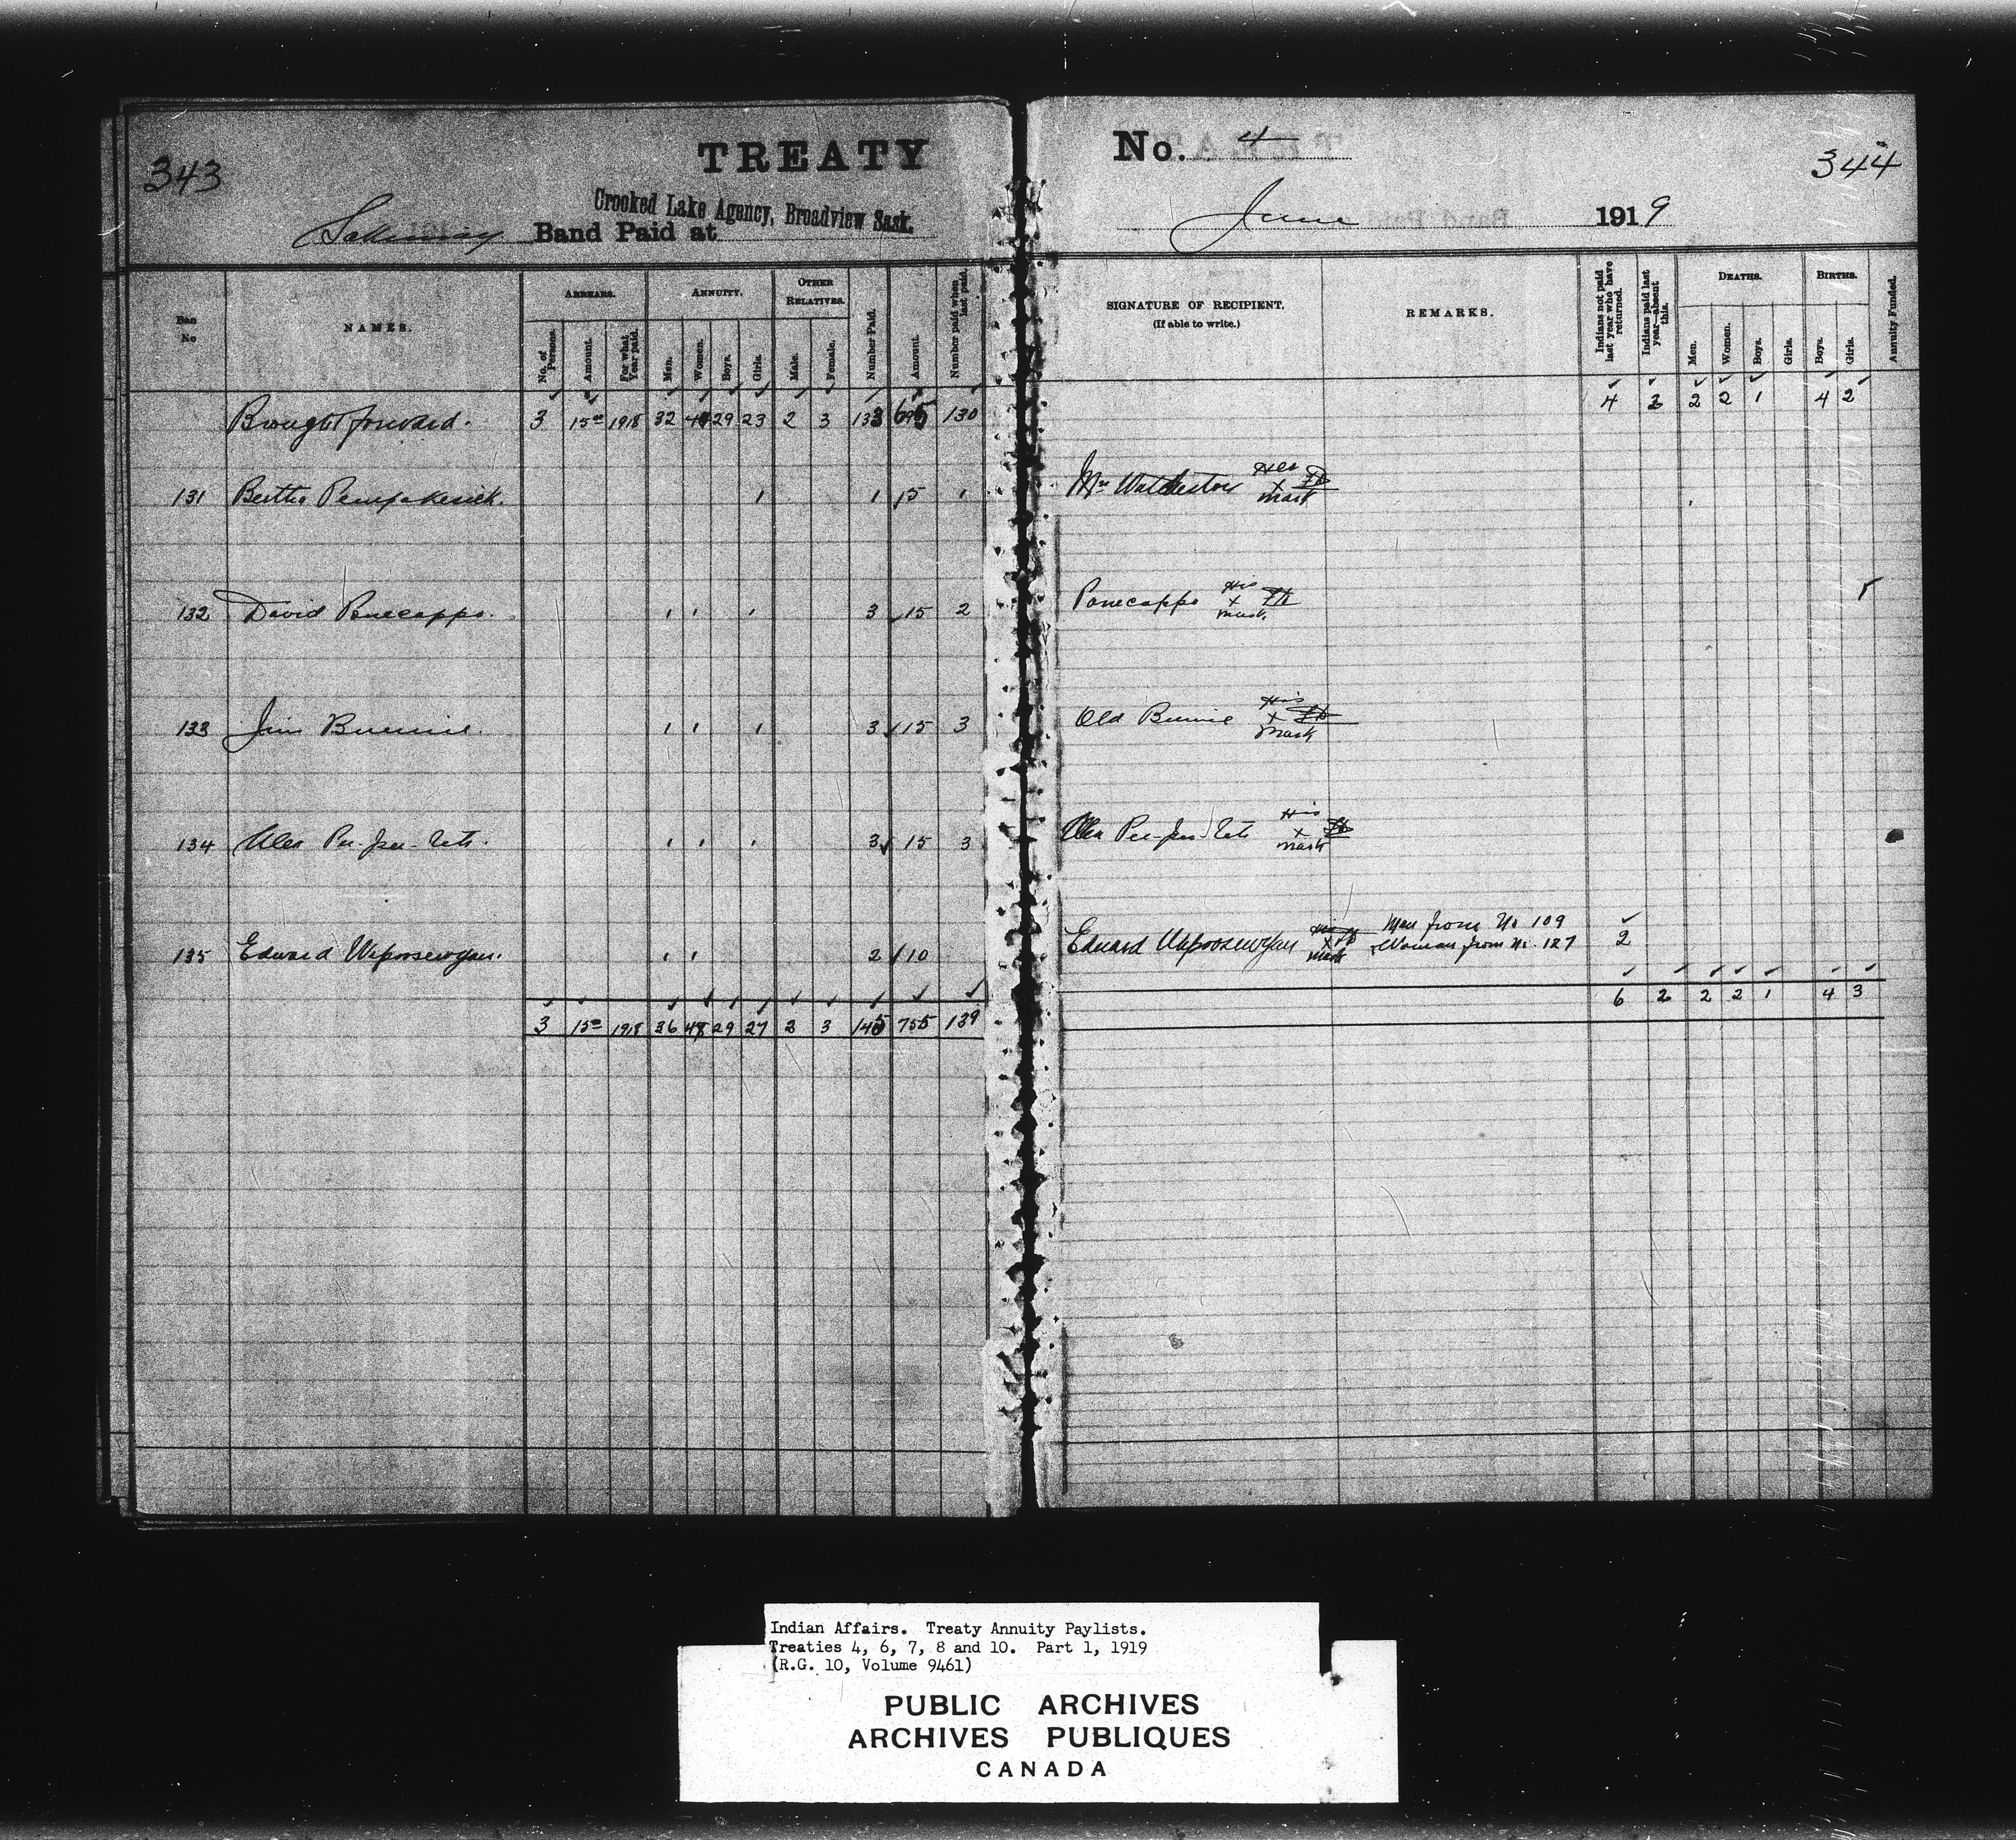 343
TREATY
Crooked Lake Agency, Broadview Sask.
Sakimay Band Paid at
No. 4
344
June 1919
No
NAMES.
ARREARS.
ANNUITY.
OTHER RELATIVES.
No. of Persons.
Amount.
For what Year paid.
Men.
Women.
Boys.
Girls.
Male.
Female.
Number Paid.
Amount.
Number paid when last paid.
SIGNATURE OF RECIPIENT.
(If able to write.)
REMARKS.
Indians not paid last year who have returned.
Indians paid last year—absent this.
DEATHS.
Men.
Women.
Boys.
Girls.
BIRTHS.
Boys.
Girls.
Annuity Funded.
Brought forward. 3 15 00 1918 32 29 23 2 3 133 695 130 4 2 2 2 1 4 2
131 Bertha 1 1 5 1 Mrs Her X mark
132 David 1 1 1 3 15 2 Ponecappo His X mark
133 Jim 1 1 1 3 15 3 Old His X mark
134 Alex 1 1 1 3 15 3 Alex His X mark
135 Edward Wapoosewyan. 1 1 2 10 Edward Wapoosewyan His X mark Man from No 109
Woman from No. 127 2
3 15 00 1918 36 48 29 27 2 3 145 755 139 6 2 2 2 1 4 3
Indian Affairs. Treaty Annuity Paylists.
Treaties 4, 6, 7, 8 and 10. Part 1, 1919
(R.G. 10, Volume 9461)
PUBLIC ARCHIVES
ARCHIVES PUBLIQUES
CANADA